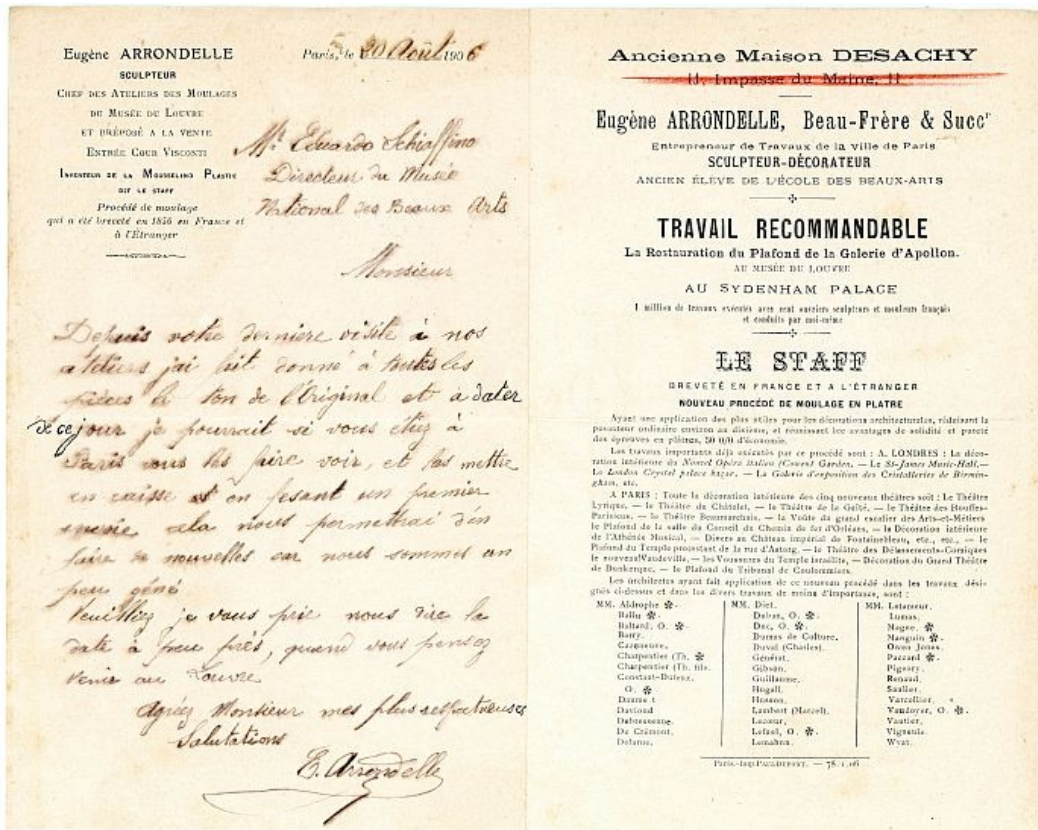 Eugène ARRONDELLE
SCULPTEUR
CHEF DES ATELIERS DES MOULAGES
DU MUSÉE DU LOUVRE
ET PRÉPOSÉ A LA VENTE
ENTRÉE COUR VISCONTI
INVENTEUR DE LA MOUSSELINO PLASTIE
DIT LE STAFF
Procédé de moulage
qui a été breveté en 1856 en France et
à l'Étranger
Paris, le 20 Août 1906
Mr Eduardo Schiaffino
Directeur du Musée
National des Beaux Arts
Monsieur
Depuis votre derniere visite à nos
ateliers jai fait donné à toutes les
pièces le ton de l'Original et à dater
de ce jour je pourrait si vous étiez à
Paris vous les faire voir, et les mettre
en caisse et en fesant un premier
cela nous permettrai d'en
faire de nouvelles car nous sommes un
peu géné
Veuilliez je vous prie nous dire la
date à peu près, quand vous pensez
venir au Louvre
Agréez Monsieur mes plus respectueuses
Salutations
E. Arrondelle
Ancienne Maison DESACHY
11, Impasse du Maine, 11
Eugène ARRONDELLE, Beau-Frère & Succr
Entrepreneur de Travaux de la ville de Paris
SCULPTEUR-DÉCORATEUR
ANCIEN ÉLÈVE DE L'ÉCOLE DES BEAUX-ARTS
TRAVAIL RECOMMANDABLE
La Restauration du Plafond de la Galerie d'Apollon.
AU MUSÉE DU LOUVRE
AU SYDENHAM PALACE
1 million de travaux exécutés avec cent ouvriers sculpteurs et mouleurs français
et conduits par moi-même
LE STAFF
BREVETÉ EN FRANCE ET A L'ÉTRANGER
NOUVEAU PROCÉDÉ DE MOULAGE EN PLATRE
Ayant une application des plus utiles pour les décorations architecturales, réduisant la
pesanteur ordinaire environ au dixième, et réunissant les avantages de solidité et pureté
des épreuves en plâtres, 50 0/0 d'économie.
Les travaux importants déjà exécutés par ce procédé sont : A. LONDRES : La déco-
ration intérieure du Nouvel Opéra italien (Covent Garden. — Le St-James Music-Hall. —
Le London Crystal palace bazar. — La Galerie d'exposition des Cristalleries de Birmin-
gham, etc.
A PARIS : Toute la décoration intérieure des cinq nouveaux théâtres soit : Le Théâtre
Lyrique, — le Théâtre du Châtelet, — le Théâtre de la Gaîté, — le Théâtre des Bouffes-
Parisiens, — le Théâtre Beaumarchais, — la Voûte du grand escalier des Arts-et-Métiers
le Plafond de la salle du Conseil du Chemin de fer d'Orléans, — la Décoration intérieure
de l'Athénée Musical, — Divers au Château impérial de Fontainebleau, etc., etc., — le
Plafond du Temple protestant de la rue d'Astorg, — le Théâtre des Délassements-Comiques
le nouveau Vaudeville, — les Voussures du Temple israélite, — Décoration du Grand Théâtre
de Dunkerque, — le Plafond du Tribunal de Coulommiers.
Les architectes ayant fait application de ce nouveau procédé dans les travaux dési-
gnés ci-dessus et dans les divers travaux de moins d'importance, sont :
MM. Aldrophe ✻.
Ballu ✻.
Baltard, O. ✻.
Barry.
Charpentier (Th. ✻
Charpentier (Th. fils.
Constant-Dufeux,
O. ✻
Davioud
Dubressenne.
De Crémont.
Delarue.
MM. Diet.
Duban, O. ✻.
Duc, O. ✻.
Dumas de Culture.
Duval (Charles).
Général.
Gibson.
Guillaume.
Hugall.
Husson.
Lambert (Marcel).
Lecœur.
Lefuel, O. ✻.
MM. Letameur.
Lumas.
Nagne. ✻.
Manguin ✻.
Owen Jones.
Paccard ✻.
Pigeary.
Renaud.
Saulier.
Varcollier.
Vaudoyer, O. ✻.
Vautier.
Vigneule.
Wyat.